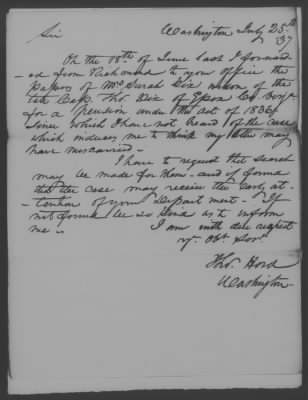 Washington July 25th
Sir 37
On the 18th of June last I forward
-ed from Richmond to your office the
Papers of Mrs Sarah Dix widow of the
late Capt. Tho. Dix of Essex Co
for a Pension under the Act of 1836
Since which I have not heard of the case
which induces me to think my letter may
have miscarried.
I have to request that search
may be made for them - and if found
that the case may receive the early at-
-tention of your Department - If
not found be so kind as to inform
me -
I am with due respect
yr Obt Servt
Tho. Hord
Washington